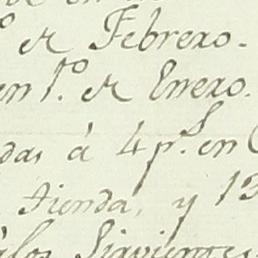 º de Febrero.
en 1.º de Enero.
das á 4 p.s en
tienda, y 13
Sirvientes